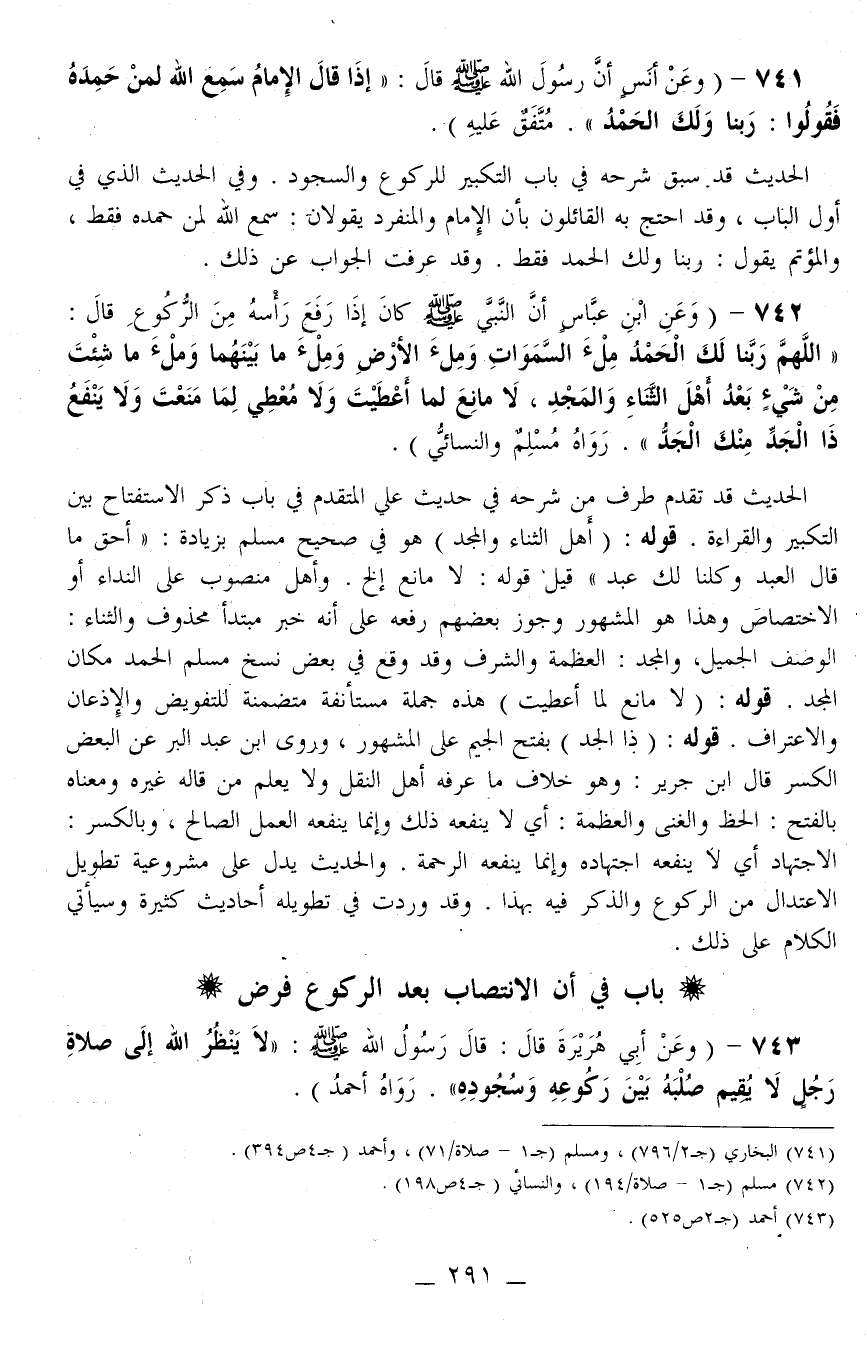 ٧٤١ – ( وعَنْ أنَسٍ أنَّ رسُولَ الله ﷺ قالَ : « إذَا قالَ الإِمامُ سَمِعَ الله لمنْ حَمِدَهُ
فَقُولُوا : رَبنا وَلَكَ الحَمْدُ » . مُتَّفَقٌ عَليهِ ) .
الحديث قد سبق شرحه في باب التكبير للركوع والسجود . وفي الحديث الذي في
أول الباب ، وقد احتج به القائلون بأن الإِمام والمنفرد يقولان : سمع الله لمن حمده فقط ،
والمؤتم يقول : ربنا ولك الحمد فقط . وقد عرفت الجواب عن ذلك .
٧٤٢ – ( وَعَنِ ابْنِ عبَّاسٍ أنَّ النَّبيَّ ﷺ كانَ إذَا رَفَعَ رَأْسهُ مِنَ الرُّكُوعِ قالَ :
« اللَّهمَّ رَبَّنا لَكَ الْحَمْدُ مِلْءَ السَّمَوَاتِ وَمِلْءَ الأرْضِ وَمِلْءَ ما بَيْنَهُما وَمِلْءَ ما شِئْتَ
مِنْ شَيْءٍ بَعْدُ أَهْلَ الثَّنَاءِ وَالمَجْدِ ، لَا مانِعَ لما أَعْطَيْتَ وَلَا مُعْطِي لِمَا مَنَعْتَ وَلَا يَنْفَعُ
ذَا الْجَدِّ مِنْكَ الْجَدُّ » . رَوَاهُ مُسْلِمٌ والنسائيُّ ) .
الحديث قد تقدم طرف من شرحه في حديث علي المتقدم في باب ذكر الاستفتاح بين
التكبير والقراءة . قوله : ( أهل الثناء والمجد ) هو في صحيح مسلم بزيادة : « أحق ما
قال العبد وكلنا لك عبد » قبل قوله : لا مانع إلخ . وأهل منصوب على النداء أو
الاختصاص وهذا هو المشهور وجوز بعضهم رفعه على أنه خبر مبتدأ محذوف والثناء :
الوصف الجميل، والمجد : العظمة والشرف وقد وقع في بعض نسخ مسلم الحمد مكان
المجد . قوله : ( لا مانع لما أعطيت ) هذه جملة مستأنفة متضمنة للتفويض والإِذعان
والاعتراف . قوله : ( ذا الجد ) بفتح الجيم على المشهور ، وروى ابن عبد البر عن البعض
الكسر قال ابن جرير : وهو خلاف ما عرفه أهل النقل ولا يعلم من قاله غيره ومعناه
بالفتح : الحظ والغنى والعظمة : أي لا ينفعه ذلك وإنما ينفعه العمل الصالح ، وبالكسر :
الاجتهاد أي لا ينفعه اجتهاده وإنما ينفعه الرحمة . والحديث يدل على مشروعية تطويل
الاعتدال من الركوع والذكر فيه بهذا . وقد وردت في تطويله أحاديث كثيرة وسيأتي
الكلام على ذلك .
باب في أن الانتصاب بعد الركوع فرض
٧٤٣ – ( وعَنْ أبِي هُرَيْرَةَ قالَ : قالَ رَسُولُ الله ﷺ : «لاَ يَنْظُرُ الله إلَى صلاةِ
رَجُلٍ لَا يُقِيم صلْبَهُ بَيْنَ رَكُوعِهِ وَسُجُودِهِ» . رَوَاهُ أحمدُ ) .
(٧٤١) البخاري (جـ٧٩٦/٢) ، ومسلم (جـ١ – صلاة/٧١) ، وأحمد ( جـ٤ص٣٩٤) .
(٧٤٢) مسلم (جـ١ – صلاة/١٩٤) ، والنسائي ( جـ٤ص١٩٨) .
(٧٤٣) أحمد (جـ٢ص٥٢٥) .
– ٢٩١ –